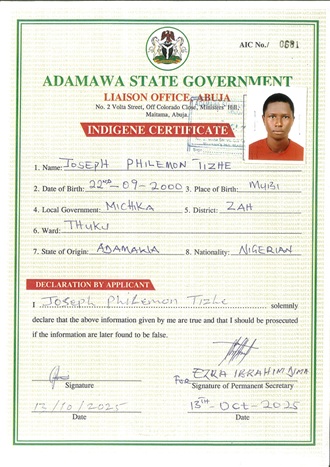 AIC No./ 0681
ADAMAWA STATE GOVERNMENT
LIAISON OFFICE, ABUJA
No. 2 Volta Street, Off Colorado Close, Ministers' Hill,
Maitama, Abuja.
INDIGENE CERTIFICATE
1. Name: JOSEPH PHILEMON TIZHE
2. Date of Birth: 22ND-09-2000 3. Place of Birth: MUBI
4. Local Government: MICHIKA 5. District: ZAH
6. Ward: THUKU
7. State of Origin: ADAMAWA 8. Nationality: NIGERIAN
DECLARATION BY APPLICANT
I Joseph Philemon Tizhe solemnly
declare that the above information given by me are true and that I should be prosecuted
if the information are later found to be false.
FOR EZRA IBRAHIM
Signature Signature of Permanent Secretary
13/10/2025 13TH-Oct-2025
Date Date